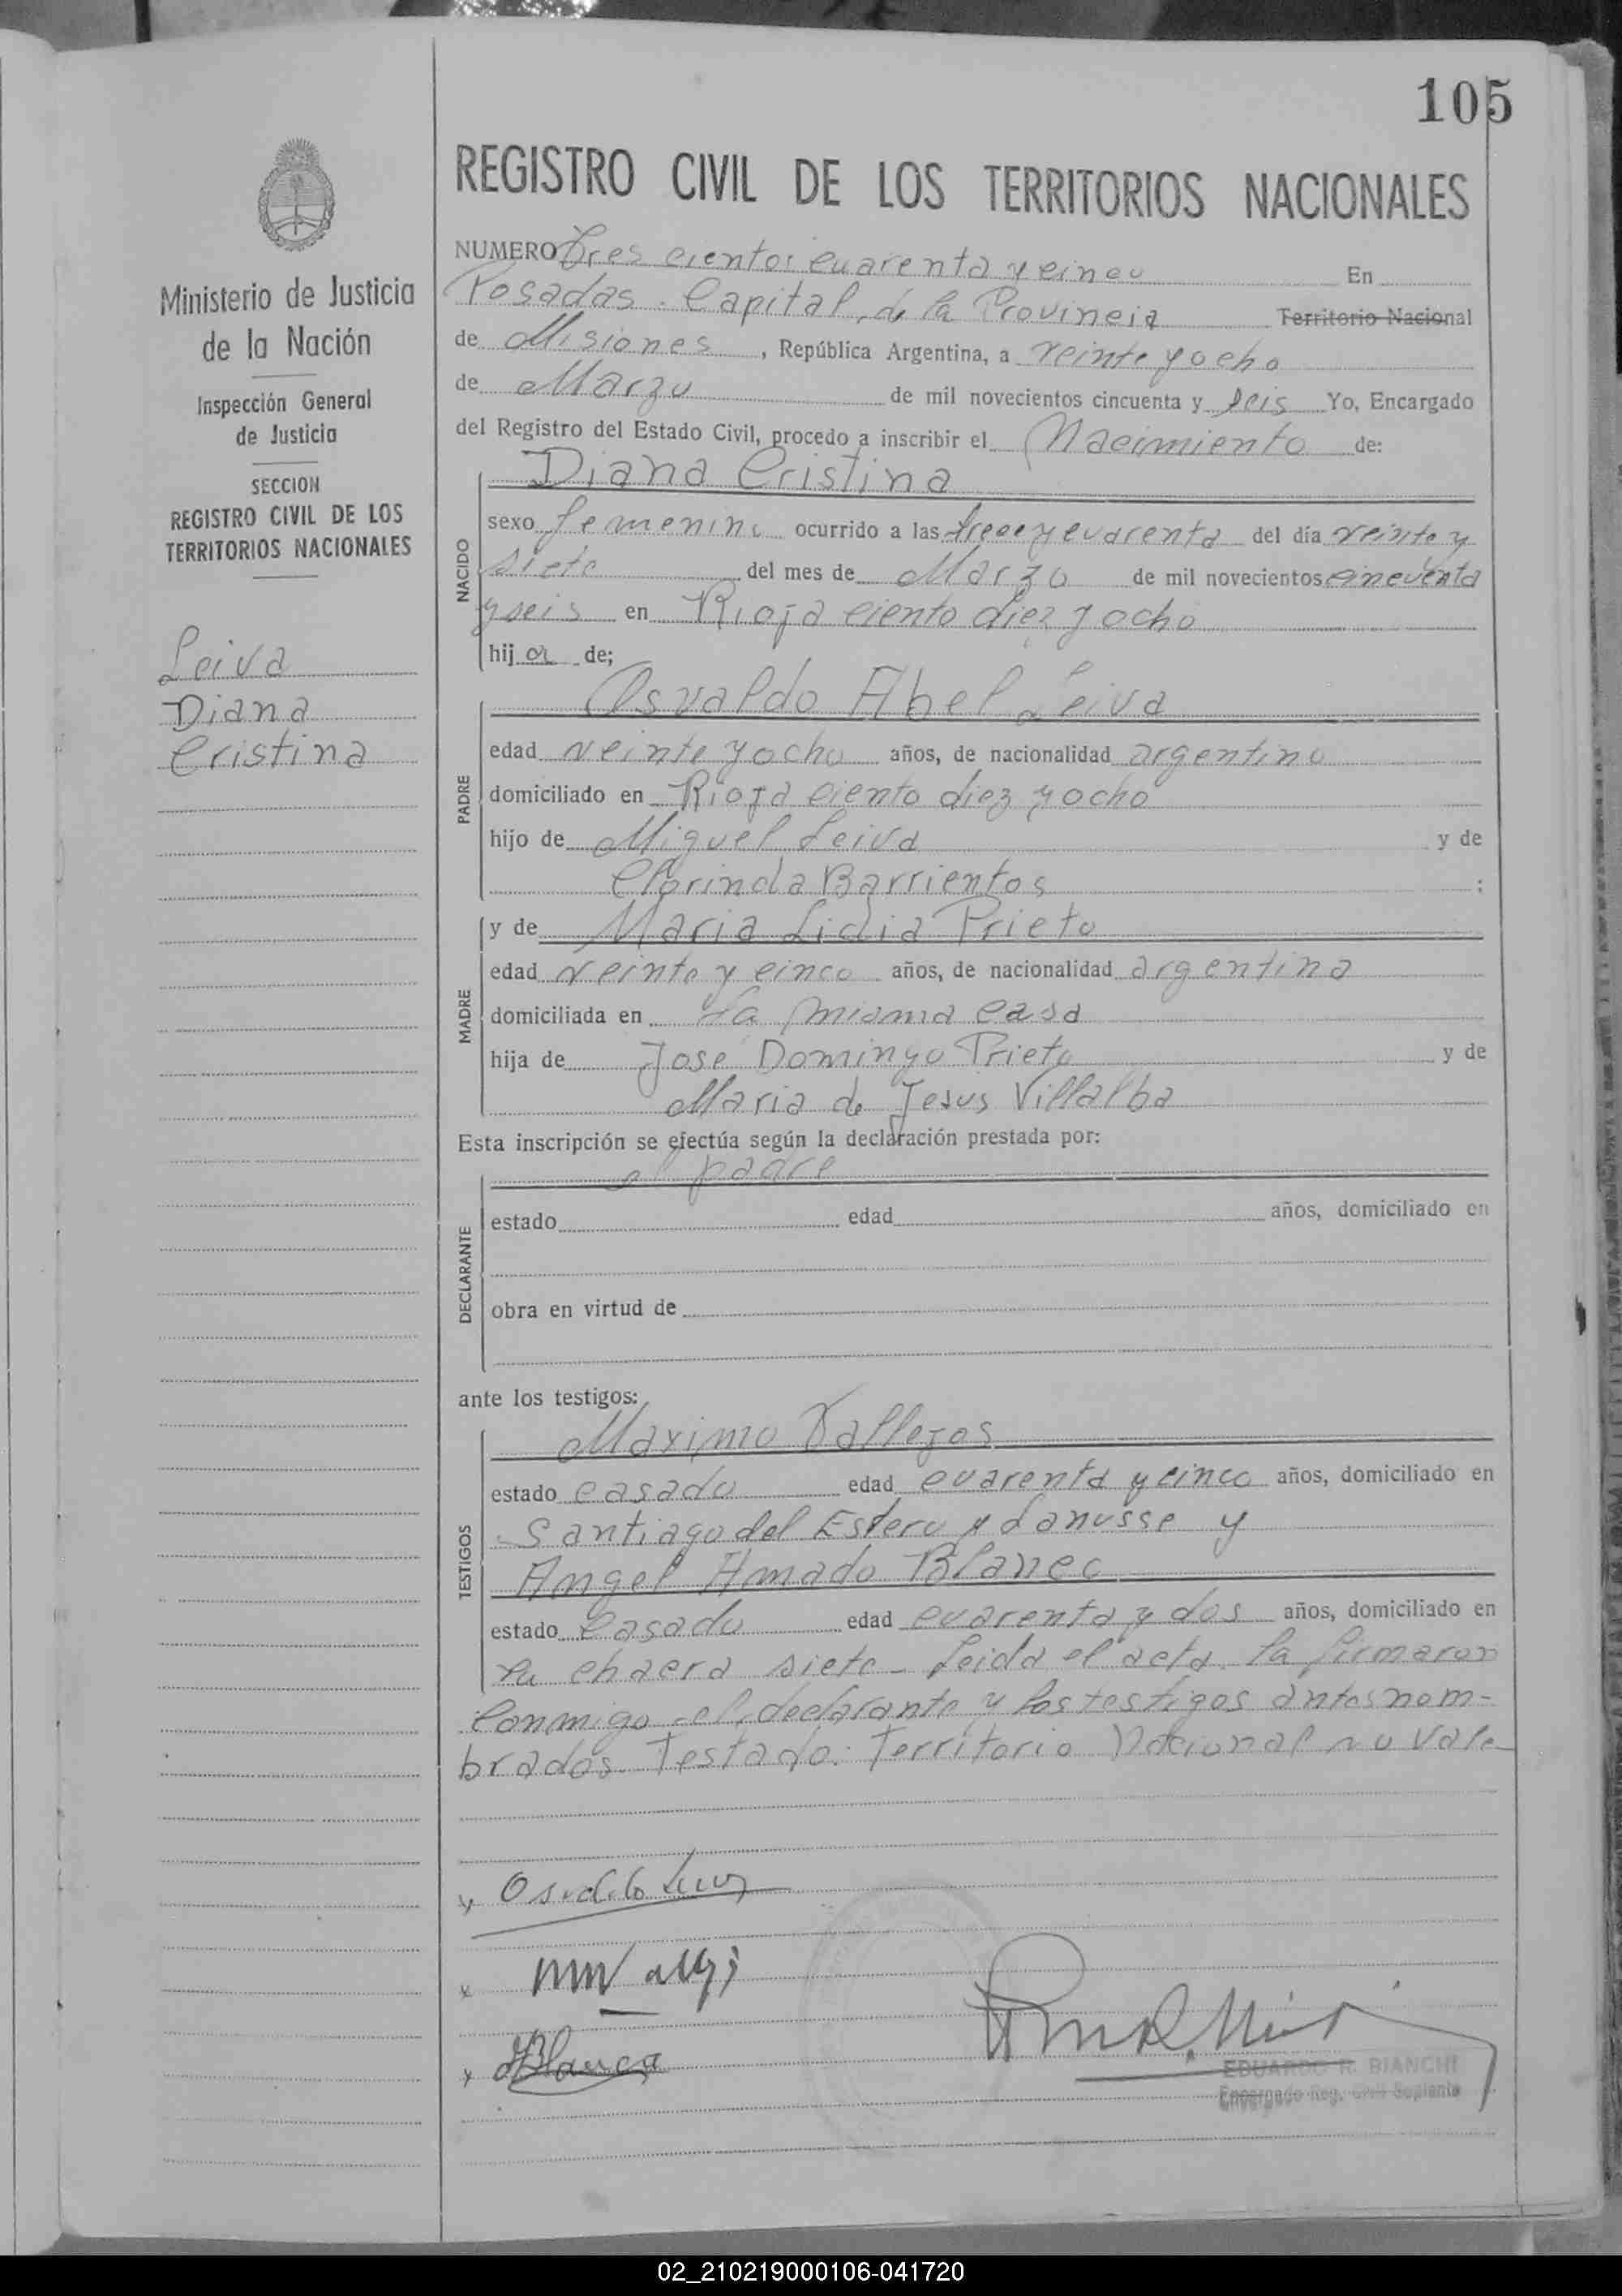 105
REGISTRO CIVIL DE LOS TERRITORIOS NACIONALES
Ministerio de Justicia
de la Nación
Inspección General
de Justicia
SECCION
REGISTRO CIVIL DE LOS
TERRITORIOS NACIONALES
Leiva
Diana
Cristina
NUMERO Tres cientos cuarenta y cinco En
Posadas. Capital de la Provincia Territorio Nacional
de Misiones, República Argentina, a veinte y ocho
de Marzo de mil novecientos cincuenta y seis Yo, Encargado
del Registro del Estado Civil, procedo a inscribir el Nacimiento de:
NACIDO
Diana Cristina
sexo femenino ocurrido a las trece y cuarenta del día veinte y
siete del mes de Marzo de mil novecientos cincuenta
y seis en Rioja ciento diez y ocho
hija de;
PADRE
Osvaldo Abel Leiva
edad veinte y ocho años, de nacionalidad argentino
domiciliado en Rioja ciento diez y ocho
hijo de Miguel Leiva y de
Clorinda Barrientos ;
MADRE
y de Maria Lidia Prieto
edad veinte y cinco años, de nacionalidad argentina
domiciliada en la misma casa
hija de José Domingo Prieto y de
Maria de Jesus Villalba
Esta inscripción se efectúa según la declaración prestada por:
DECLARANTE
el padre
estado edad años, domiciliado en
obra en virtud de
ante los testigos:
TESTIGOS
Maximo Vallejos
estado casado edad cuarenta y cinco años, domiciliado en
Santiago del Estero y Lanusse y
Angel Amado Blanco
estado casado edad cuarenta y dos años, domiciliado en
la chacra siete - Leida el acta. la firmaron
conmigo el declarante y los testigos antes nom-
brados. Testado: Territorio Nacional no vale
Osvaldo
Blanco
EDUARDO R. BIANCHI
Encargado Reg. Civil Suplente
02_210219000106-041720